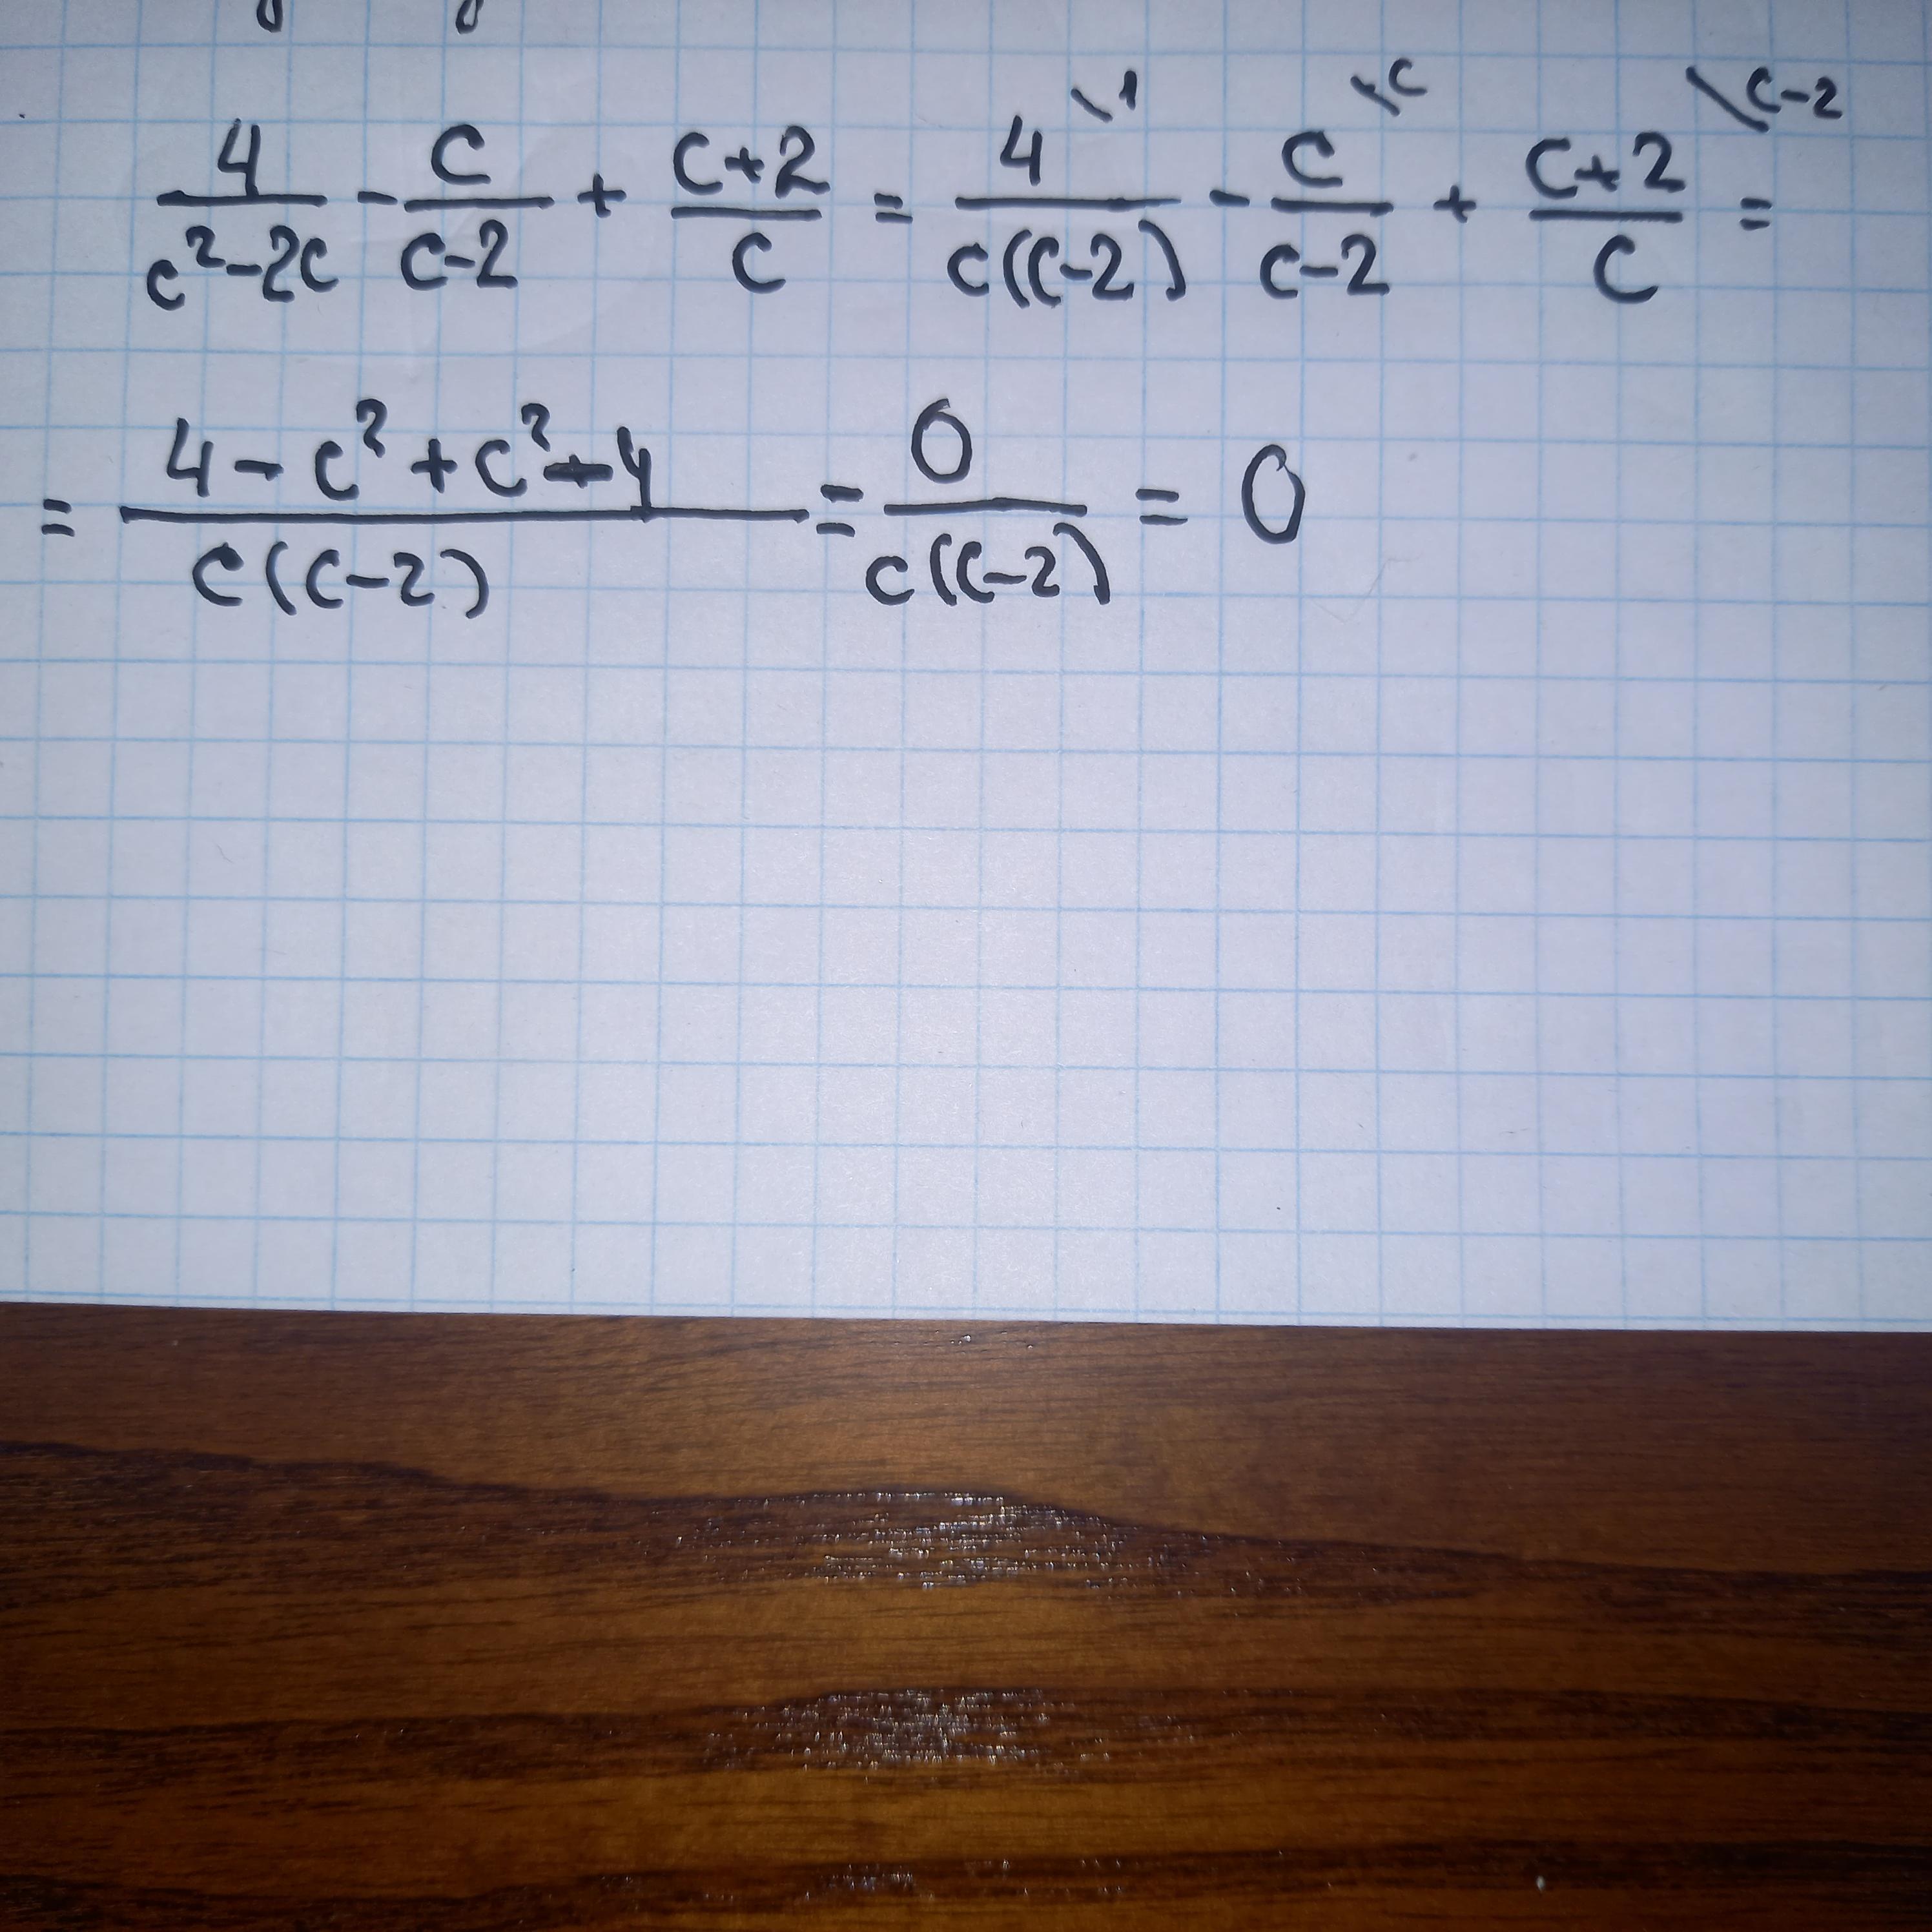 4/(c²-2c) - c/(c-2) + (c+2)/c = 4\1/(c(c-2)) - c\c/(c-2) + (c+2)\c-2/c =
= (4-c²+c²-4)/(c(c-2)) = 0/(c(c-2)) = 0